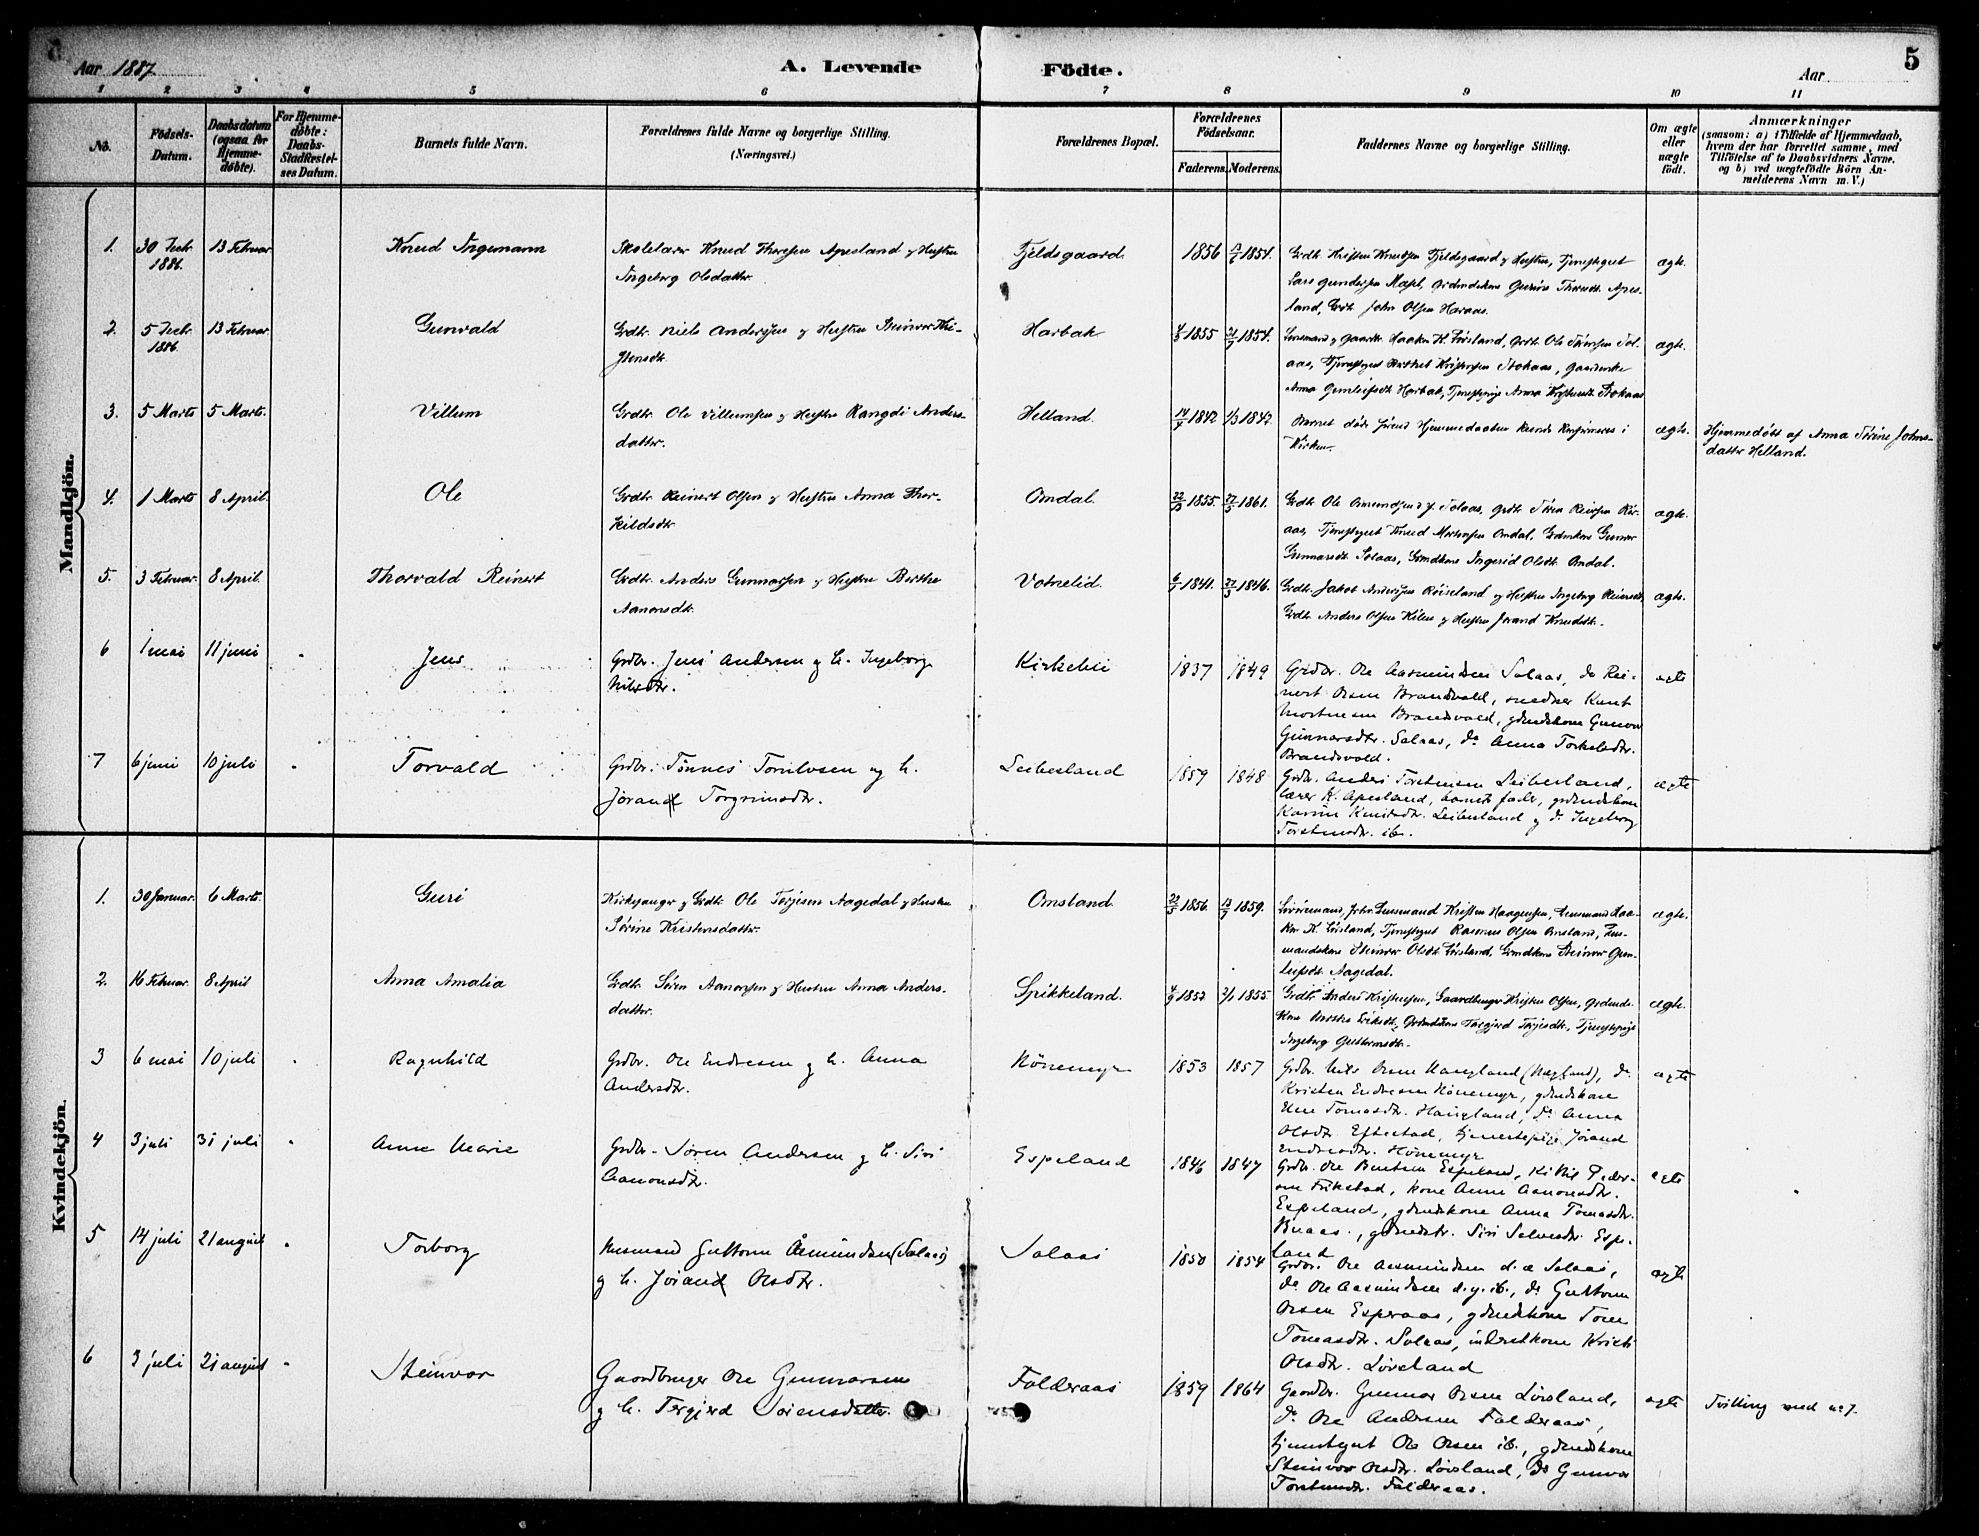 Aar 1887
A. Levende Födte.
Aar
5
1 2 3 4 5 6 7 8 9 10 11
No.
Födsels-Datum.
Daabsdatum (ogsaa for Hjemme-døbte).
For Hjemme-døbte: Daabs-Stadfæstel-ses Datum.
Barnets fulde Navn.
Forældrenes fulde Navne og borgerlige Stilling.
(Næringsvei.)
Forældrenes Bopæl.
Forældrenes Födselsaar.
Faderens. Moderens.
Faddernes Navne og borgerlige Stilling.
Om ægte eller uægte født.
Anmærkninger
(saasom: a) i Tilfælde af Hjemmedaab,
hvem der har forrettet samme, med
Tilföielse af to Daabsvidners Navne.
og b) ved uægtefödte Börn An-
melderens Navn m. V.)
Mandkjön.
1. 30 Decbr. 1886. 13 Februar Knud Ingemann
Skolelærer Knud Thorsen Apesland og Hustru
Ingeborg Olsdatter.
Fjeldsgaard 1856 1854.
Grdbr. Kristen Knudsen Fjeldsgaard og Hustru, Tjenestegut
Lars Gundersen
land, Grdb. John Olsen Haraas.
ægte.
2. 5 Decbr. 1886. 13 Februar. Gunvald
Grdbr. Niels Andersen og Hustru Steinvor
Harbak 1855 1854.
Lensmand og Gaardbr. Haaken K. Løvsland, Grdb. Ole
aas, Tjenestegut Stokaas,
Anna Gunleifsdtr. Harbak, Tjenestepige Anna Stokaas
ægte.
3. 5 Marts 5 Marts. Villum
Grdbr. Ole Villumsen og Hustru Rangdi Anders-
datter.
Helland. 14/7 1842 1/3 1842
Barnet døde førend Hjemmedaaben kunde i
Kirken.
ægte.
Hjemmedøbt af Anna Sørine Johns-
datter Helland.
4. 1 Marts 8 April. Ole
Grdbr. Reinert Olsen og Hustru Anna Thor-
kildsdtr.
Omdal. 1855. 1861.
Grdb. Ole Omundsen d.y. Solaas, Grdb. Søren
aas, Tjenestegut Knud Mortensen Omdal, Grdmdskone Gunvor
Gunnarsdtr. Solaas, Grmdkone Ingerid Olsdtr. Omdal.
ægte.
5. 3 Februar. 8 April. Thorvald Reinert
Grdbr. Anders Gunnarsen og Hustru Berthe
Aanonsdtr.
Votnelid. 1841. 1846.
Grdbr. Jakob Andersen Röiseland og Hustru Ingeborg
Grdb. Anders Olsen Kilen og Hustru Jorand Knudsdtr.
ægte.
6 1 mai 11 juni Jens
Grdbr. Jens Andersen og h. Ingeborg
Nilsdtr.
Kirkebii 1837 1849
Grdbr. Ole Aasmundsen Solaas, do Rei-
nert Olsen Brandsvold, snedker Knut
Mortensen Brandsvold, gdmdskone Gunvor
Gunnarsdtr. Solaas, do Anna Torkelsdtr.
Brandsvold.
ægte
7 6 juni 10 juli Torvald
Grdbr. Tønnes og h.
Jorand Torgrimsdtr.
Leibesland 1859 1848
Grdbr. Anders Torstensen Leibesland,
lærer K. Apesland, barnets fader, grdmdskone
Karine Knutsdtr. Leibesland og do Ingeborg
Torstensdtr. ib.
ægte
Kvindekjön.
1. 30 Januar. 6 Marts. Guri
Kirkesanger og Grdbr. Ole Torjesen Aagedal og Hustru
Sørine Kristensdatter.
Omsland. 22/5 1856. 1859.
Lensmand Kristen Haagensen, Lensmand Haa-
ken K. Løvsland, Tjenestegut Rasmus Olsen Omsland, Lens-
mandskone Steinvor Olsdtr. Løvsland, Grmdkone Steinvor Gun-
leifsdtr. Aagedal.
ægte.
2. 16 Februar. 8 April Anna Amalia
Grdbr. Søren Aanonsen og Hustru Anna Anders-
datter.
Spikkeland. 4/9 1852 2/1 1855.
Grdbr. Anders Kristensen, Gaardbruger Kristen Olsen, Grdmds-
kone Eriksdtr., Grdmdskone Torgjerd Torjesdtr., Tjenestepige
Ingeborg Guttormsdtr.
ægte.
3 6 mai 10 juli Ragnhild
Grdbr. Ole Endresen og h. Anna
Andersdtr.
Hönemyr 1853 1857
Grdbr. Nils Olsen Haugland (Hægland), do
Kristen Endresen Hönemyr, gdmdskone
Tomasdtr. Haugland, do Anna
Olsdtr. Eftestad, tjenestepige Jorand
Endresdtr. Hönemyr
ægte
4 3 juli 31 juli Anne Marie
Grdbr. Søren Andersen og h. Siri
Aanonsdtr.
Espeland 1846 1847
Grdbr. Ole Bentsen Espeland, Kittil Peder-
sen Frikstad, kone Anne Aanonsdtr.
Espeland, gdmdskone Anna Tomasdtr.
Buaas, gdmdsdtr. Siri Salvesdtr. Espe-
land
ægte
5 14 juli 21 august Torborg
Husmand Guttorm Åsmundsen (Solaas)
og h. Jorand Olsdtr.
Solaas 1850 1854
Grdbr. Ole Aasmundsen d.æ Solaas,
do Ole Aasmundsen d.y. ib., do Guttorm
Olsen Esperaas, gdmdskone Tone
Tomasdtr. Solaas, inderstkone Kristi
Olsdtr. Løvsland
ægte
6 3 juli 21 august Steinvor
Gaardbruger Ole Gunnarsen
og h. Torgjerd Sørensdatter.
Falderaas 1859 1864
Gaardbr. Gunnar Olsen Løvsland,
do Ole Andersen Falderaas,
tjenestegut Ole Olsen ib., gdmdskone
Steinvor Olsdtr. Løvsland, do Gunvor
Torstensdtr. Falderaas.
ægte
Tvilling med no 7.